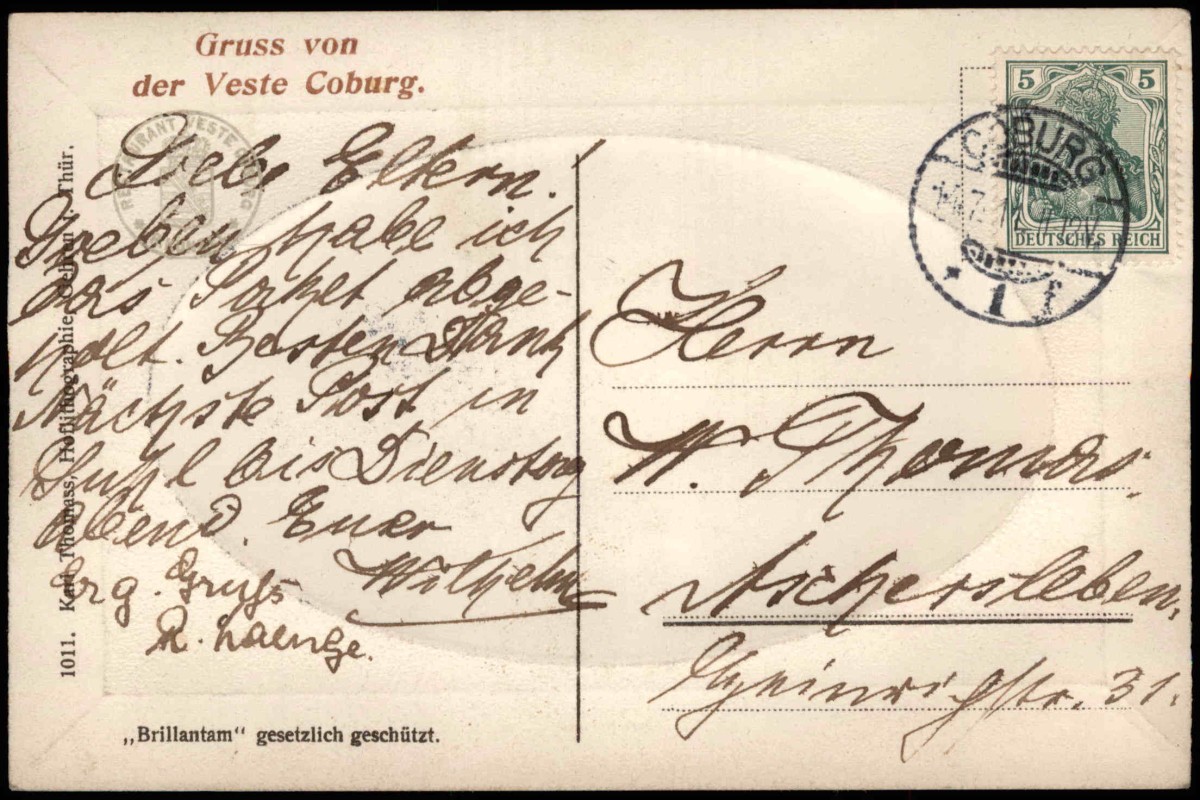 Gruss von
der Veste Coburg.
RESTAURANT VESTE COBURG
Liebe Eltern!
Soeben habe ich
das Paket abge-
holt. Besten Dank
Nächste Post in
Suhl bis Dienstag
abend. Euer
Wilhelm
Erg. Gruß
R. Laenge.
1011. Karl Thomass, Hoflithographie, Gehren i. Thür.
„Brillantam“ gesetzlich geschützt.
5 5
DEUTSCHES REICH
COBURG
* 1 f
Herrn
W. Thomas
Aschersleben,
Heinrichstr. 31.